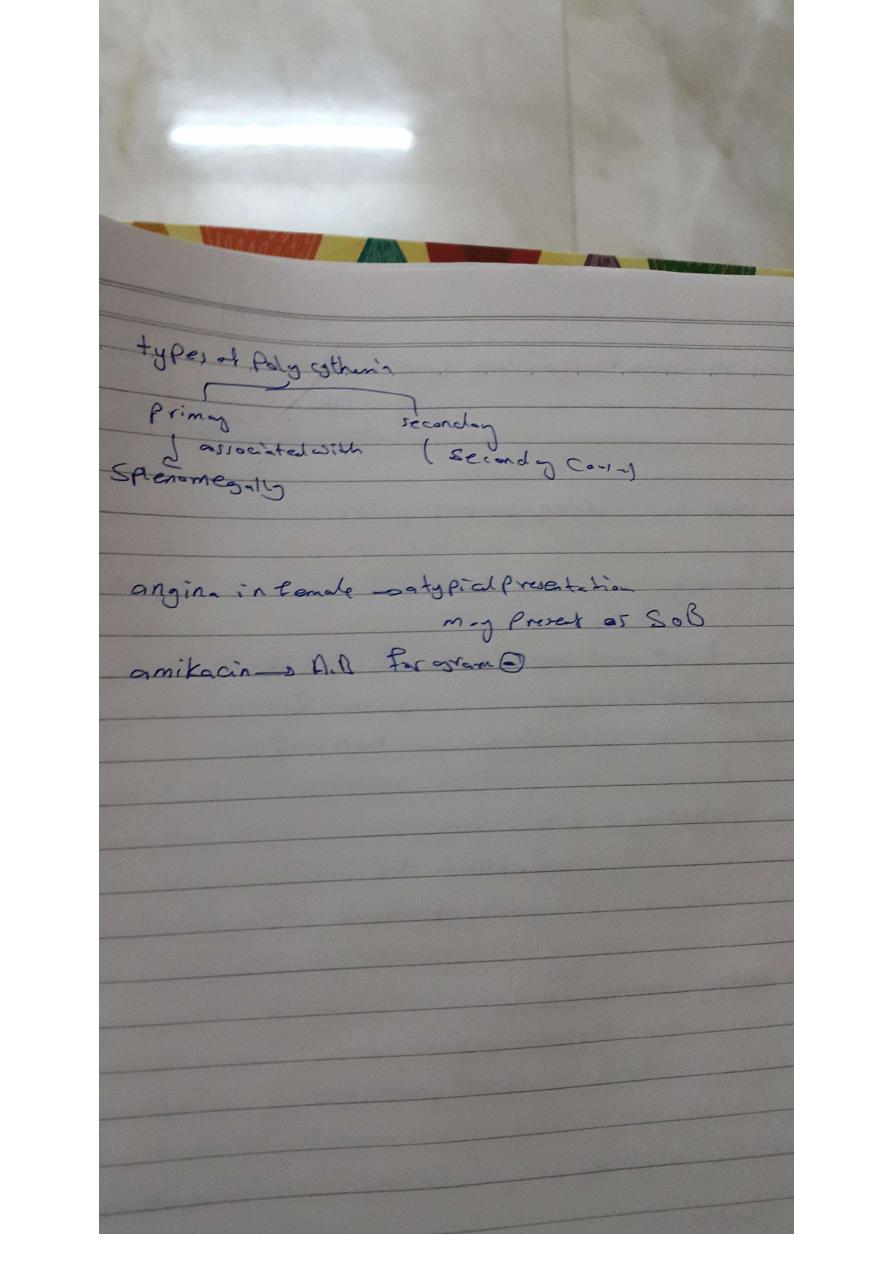 types of Polycythemia
Primary secondary
associated with ( Secondary Causes
Splenomegally
angina in female → atypical presentation
may Present as SOB
amikacin → A.B for gram ⊖